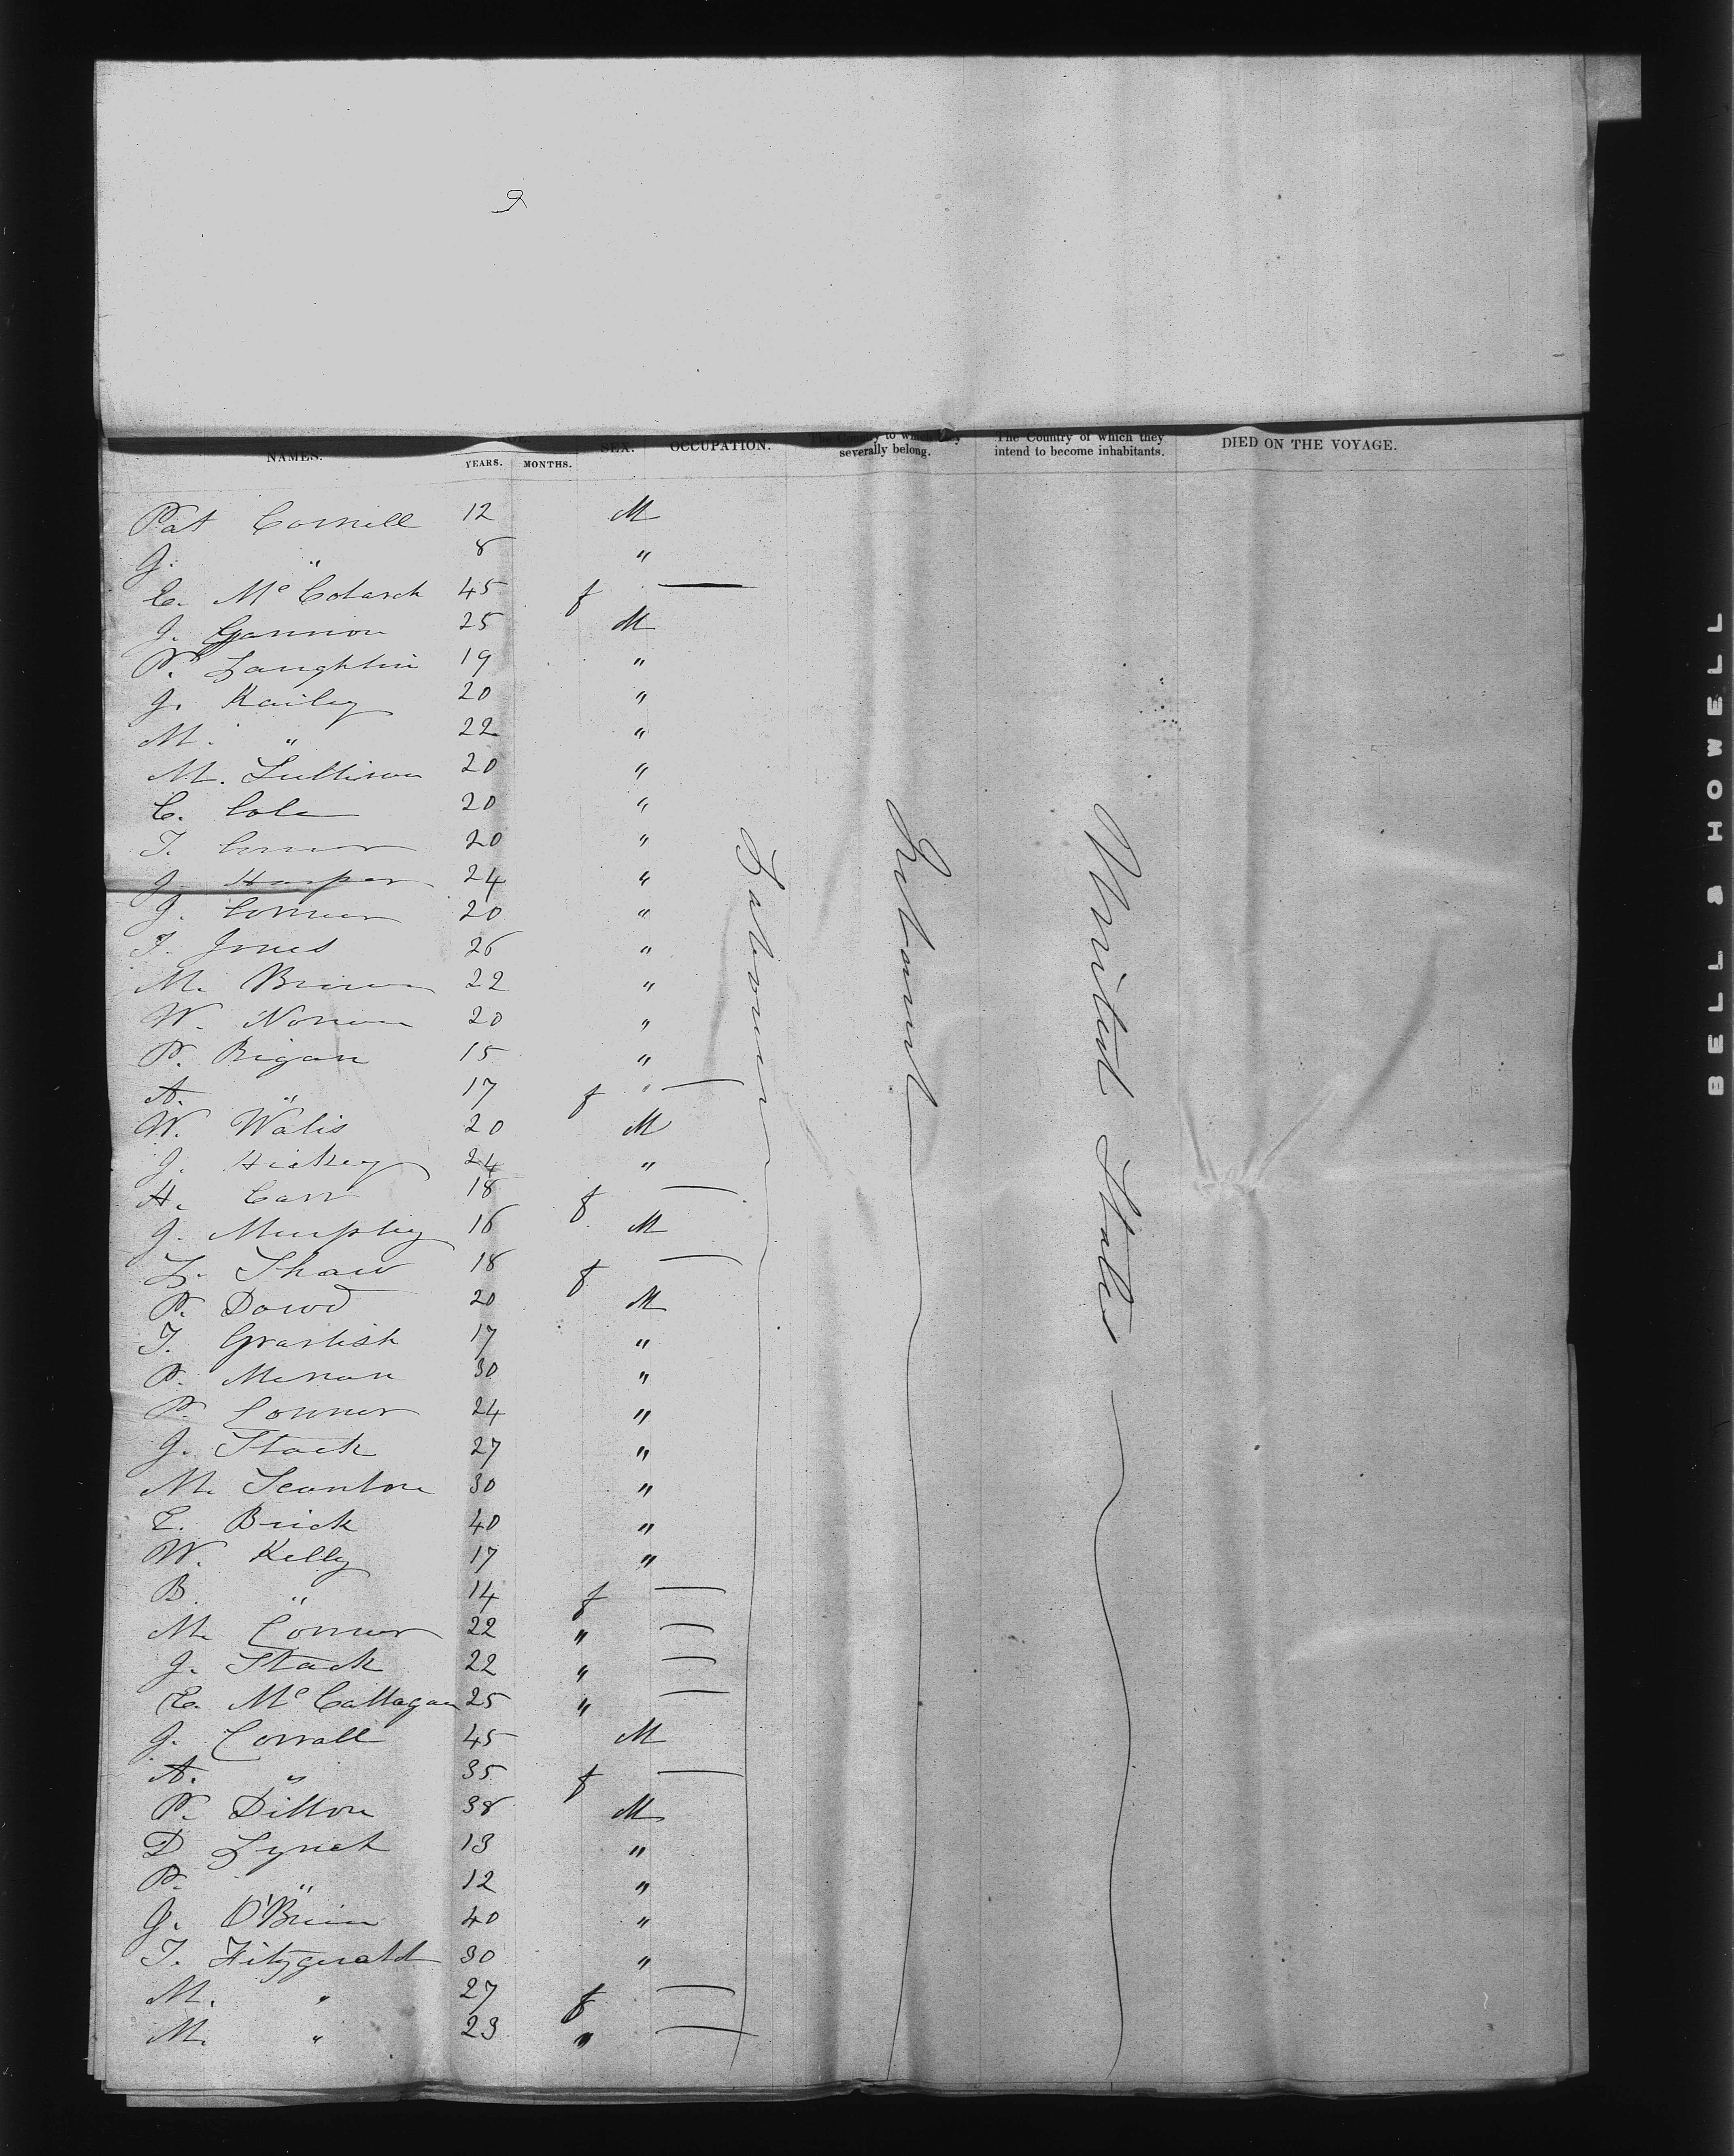 NAMES. YEARS. MONTHS. SEX. OCCUPATION. The Country to which they severally belong. The Country of which they intend to become inhabitants. DIED ON THE VOYAGE.
Pat Cornell 12 M
J. " 8 "
E. Mc Cotarck 45 f —
J. Gannon 25 M
P. Laughlin 19 "
J. Kailey 20 "
M. " 22 "
M. Sullivan 20 "
C. Cole 20 "
T. Connor 20 "
J. Harper 24 "
J. Connor 20 "
T. Jones 26 "
M. Brown 22 "
W. 20 "
P. Rigan 15 "
A. " 17 f —
W. Walis 20 M
J. Hickey 24 "
H. Carr 18 f —
J. Murphy 16 M
L. Shaw 18 f —
P. Dowd 20 M
T. 17 "
P. 30 "
P. Connor 24 "
J. Stack 27 "
M. Scanlon 30 "
E. Brick 40 "
W. Kelly 17 "
B. " 14 f —
M. Connor 22 " —
J. Stack 22 " —
E. Mc Callagan 25 " —
J. Corrall 45 M
A. " 35 f —
P. Dillon 38 M
D Lynch 13 "
P. " 12 "
J. O'Brien 40 "
T. Fitzgerald 30 "
M. " 27 f —
M. " 23 " —
Labourer
Ireland
United States
BELL & HOWELL